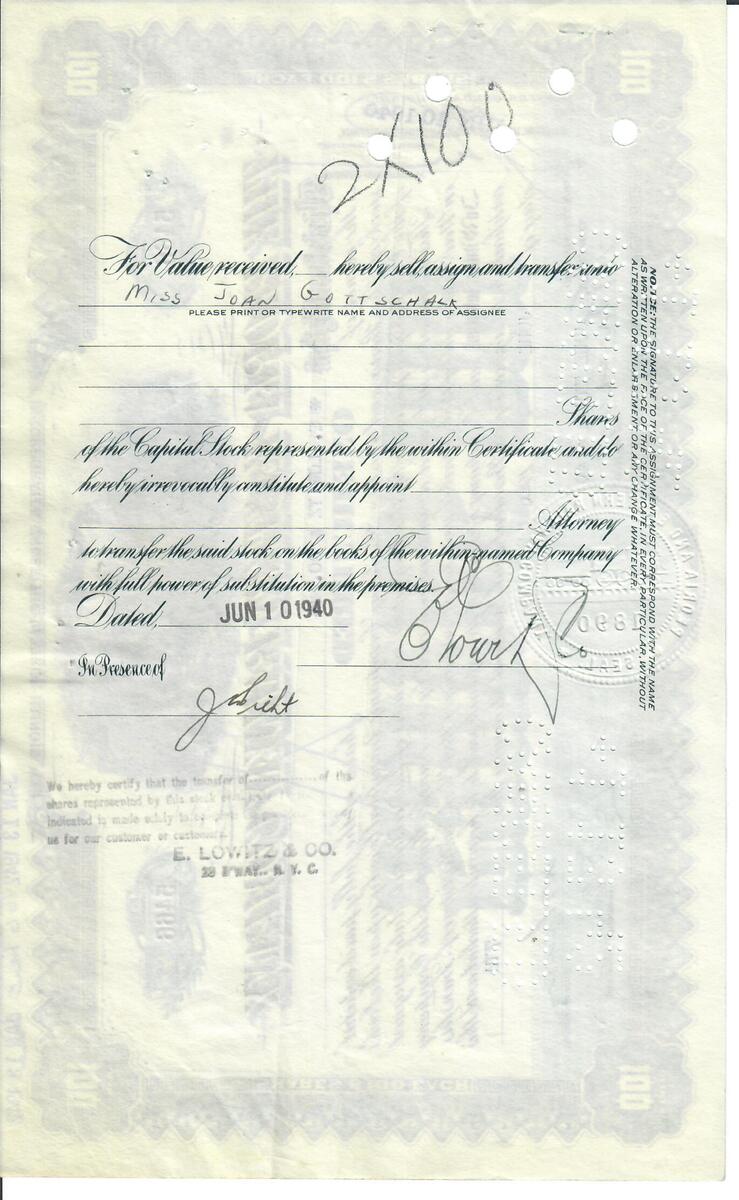 2X100
For Value received, ___ hereby sell, assign and transfer unto
Miss Joan Gottschalk
PLEASE PRINT OR TYPEWRITE NAME AND ADDRESS OF ASSIGNEE
Shares
of the Capital Stock represented by the within Certificate, and do
hereby irrevocably constitute and appoint
Attorney
to transfer the said stock on the books of the within-named Company
with full power of substitution in the premises.
Dated, JUN 10 1940
E Lowitz & Co
In Presence of
We hereby certify that the transfer of ............... of the
shares represented by this stock
indicated is made solely to
us for our customer or customers.
E. LOWITZ & CO.
29 B'WAY., N. Y. C.
NOTICE: THE SIGNATURE TO THIS ASSIGNMENT MUST CORRESPOND WITH THE NAME
AS WRITTEN UPON THE FACE OF THE CERTIFICATE, IN EVERY PARTICULAR, WITHOUT
ALTERATION OR ENLARGEMENT, OR ANY CHANGE WHATEVER.
100
100
100
100
5166
1890
SEAL